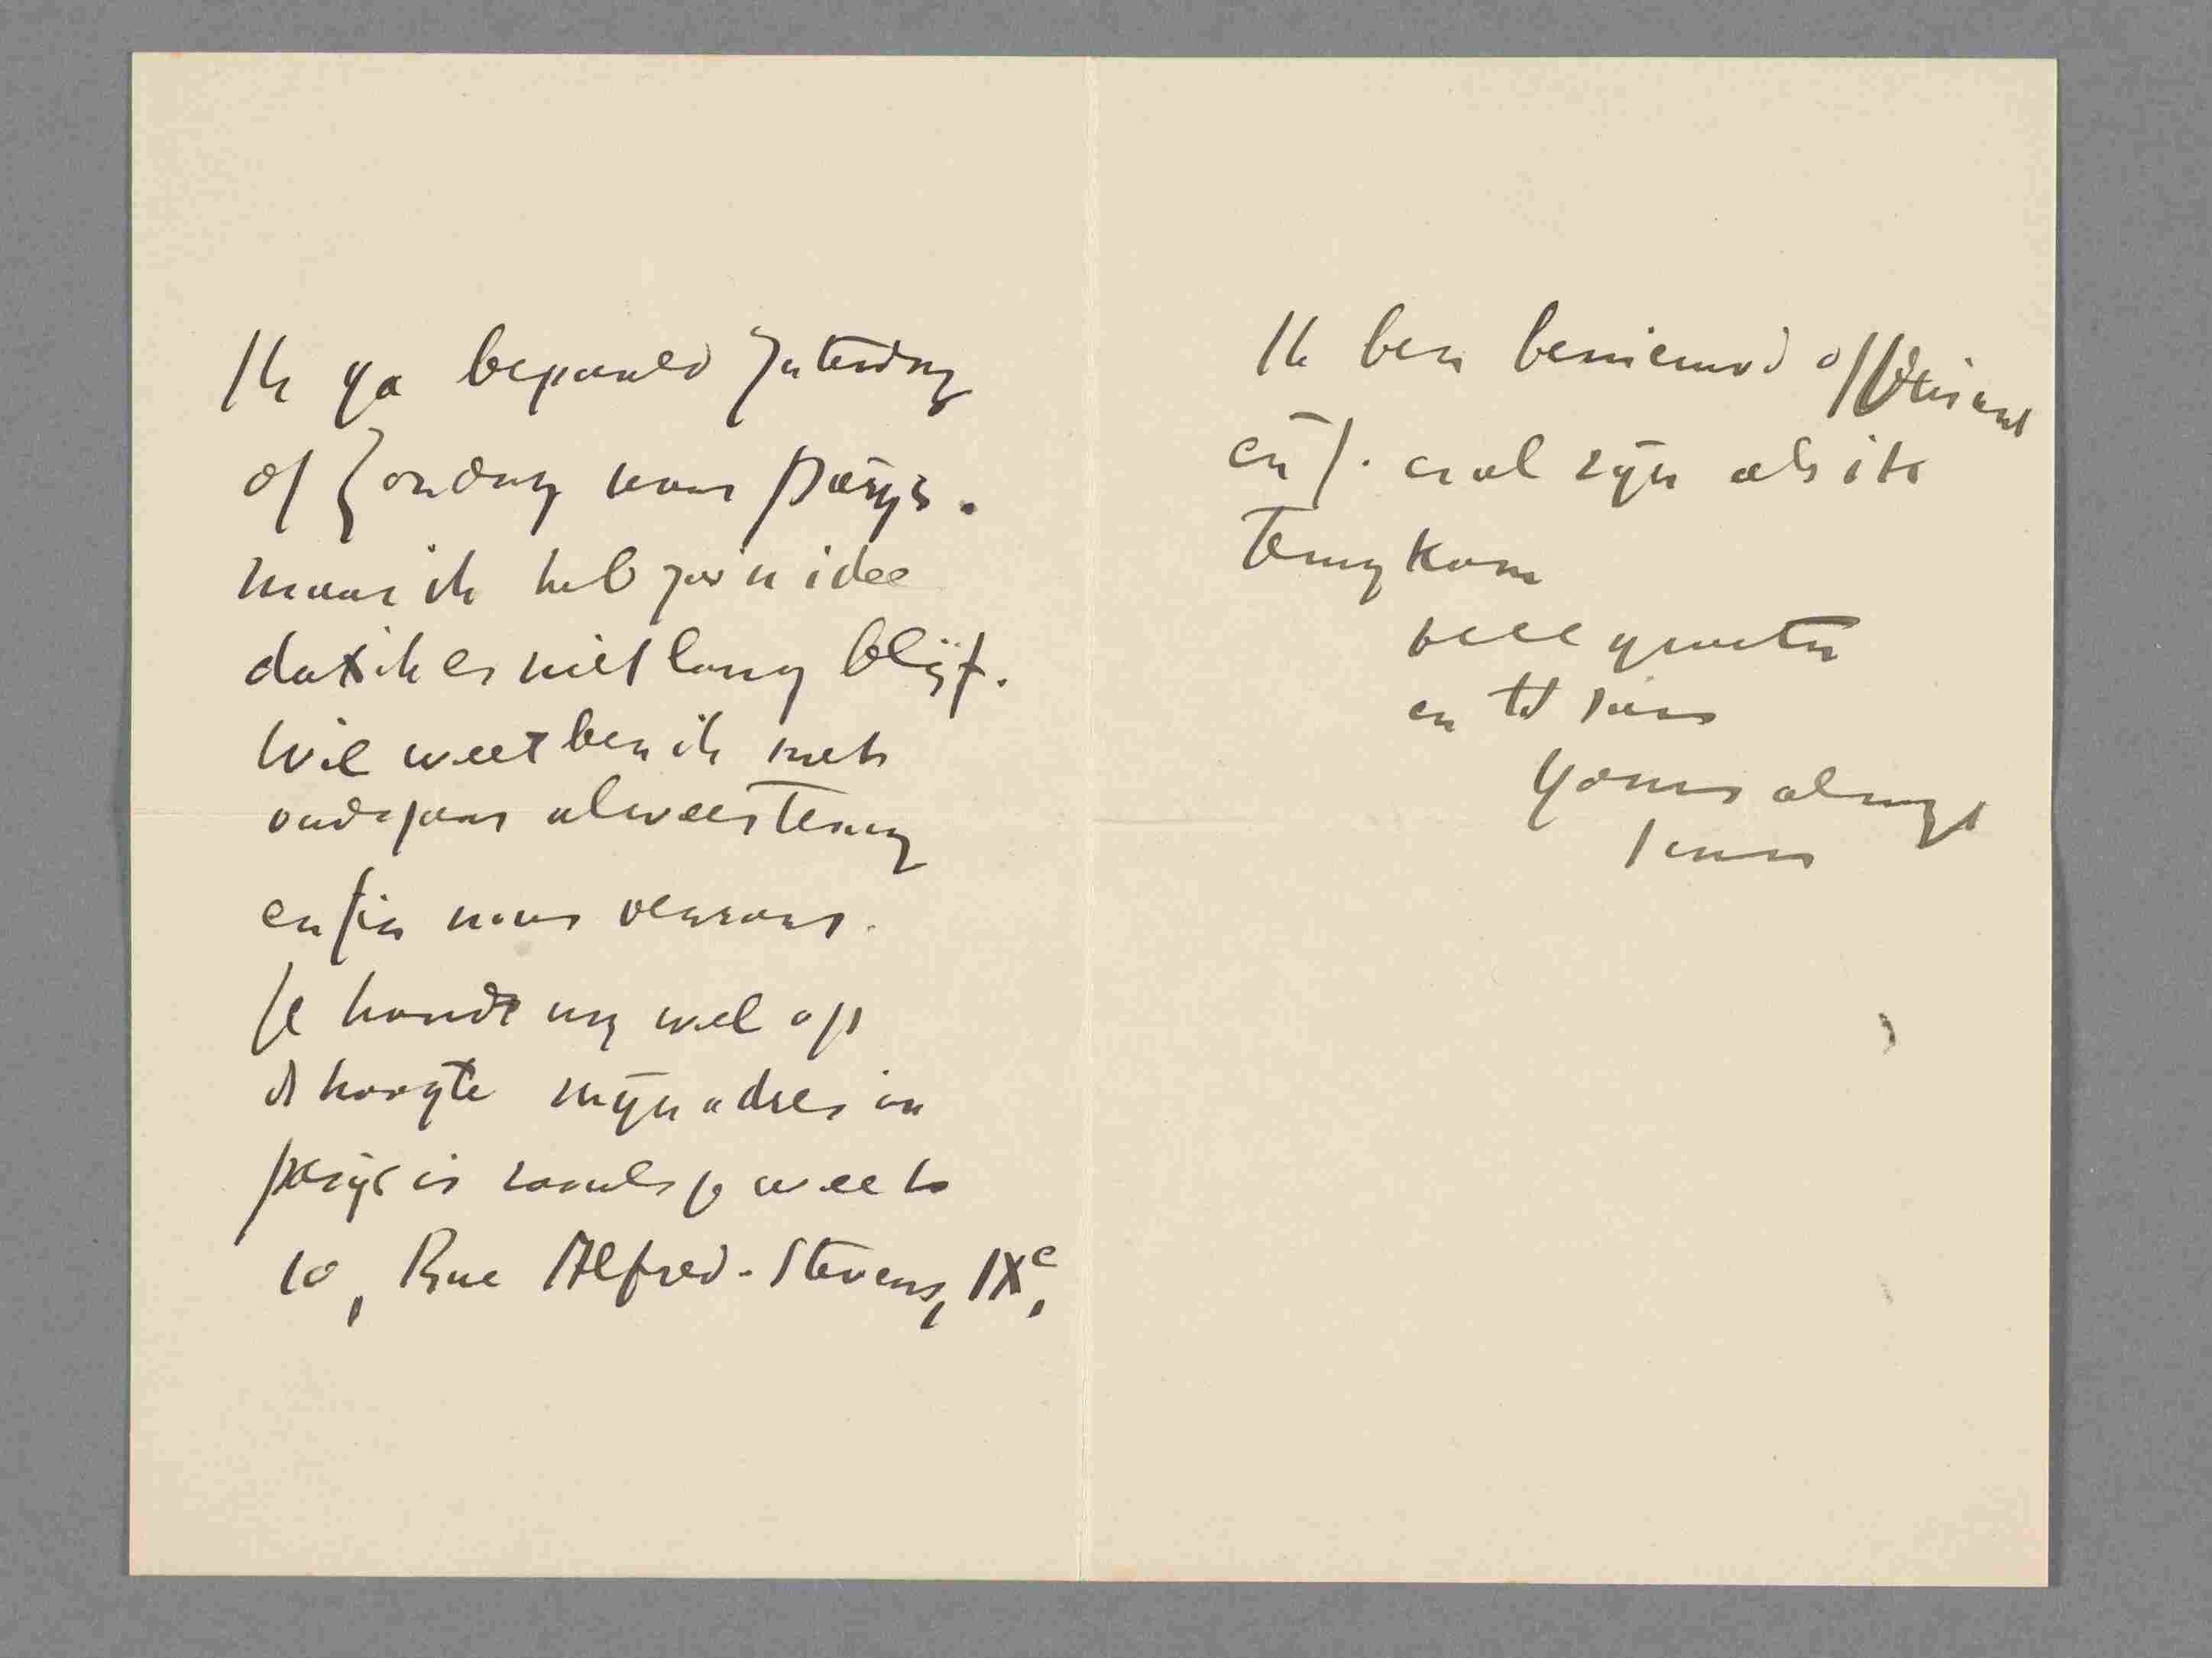 Ik ga bepaald Zaterdag
of Zondag naar Parijs.
maar ik heb zoo'n idee
dat ik er niet lang blijf.
Wie weet ben ik met
oudejaar alweer terug
enfin nous verrons.
Je houdt mij wel op
d hoogte mijn adres in
parijs is zooals je weet
10, Rue Alfred-Stevens, IXe,
Ik ben benieuwd of
er al zijn als ik
terug kom
veel groeten
en tot ziens
Yours always